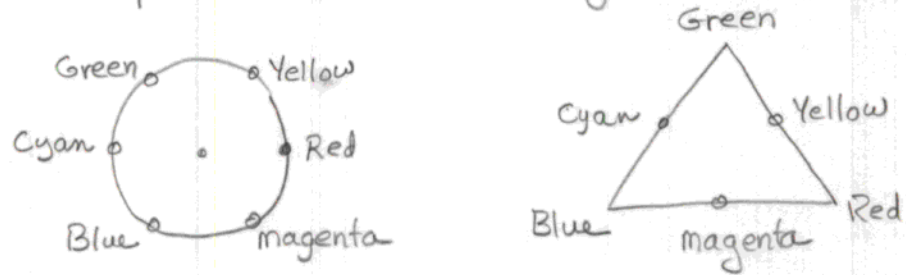 Green
Yellow
Cyan
Red
Blue
magenta
Green
Cyan
Yellow
Blue
magenta
Red